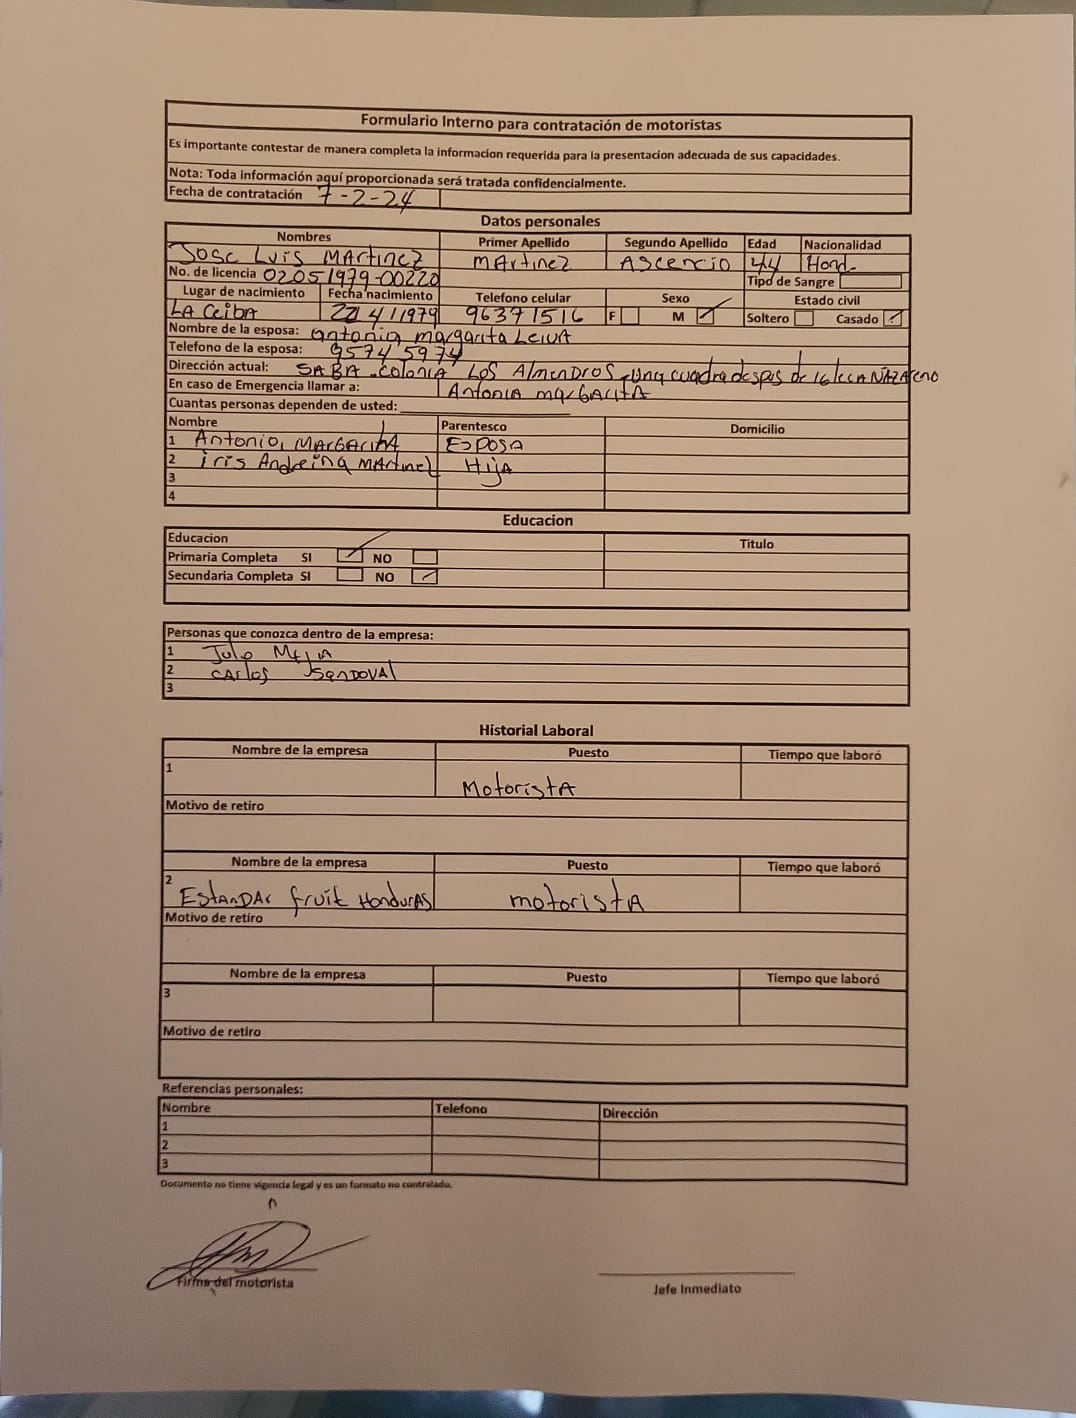 Formulario Interno para contratación de motoristas
Es importante contestar de manera completa la informacion requerida para la presentacion adecuada de sus capacidades.
Nota: Toda información aquí proporcionada será tratada confidencialmente.
Fecha de contratación 7-2-24
Datos personales
Nombres Primer Apellido Segundo Apellido Edad Nacionalidad
Jose Luis MArtinez mArtinez Ascencio 44 Hond-
No. de licencia 02051979-00220 Tipo de Sangre
Lugar de nacimiento Fecha nacimiento Telefono celular Sexo Estado civil
LA CeibA 22/4/1979 96371516 F M Soltero Casado
Nombre de la esposa: antonia margarita LeivA
Telefono de la esposa: 9574 5974
Dirección actual: SABA colonia LOS Almendros una cuadra despes de NAZAreno
En caso de Emergencia llamar a: AntoniA mArgAritA
Cuantas personas dependen de usted:
Nombre Parentesco Domicilio
1 Antonia MArgAritA EsposA
2 iris Andreina MArtinez HijA
3
4
Educacion
Educacion Titulo
Primaria Completa SI NO
Secundaria Completa SI NO
Personas que conozca dentro de la empresa:
1 Julo MejiA
2 CArlos SanDOVAl
3
Historial Laboral
Nombre de la empresa Puesto Tiempo que laboró
1 MotoristA
Motivo de retiro
Nombre de la empresa Puesto Tiempo que laboró
2 EstAnDAr fruit HonDurAs motoristA
Motivo de retiro
Nombre de la empresa Puesto Tiempo que laboró
3
Motivo de retiro
Referencias personales:
Nombre Telefono Dirección
1
2
3
Documento no tiene vigencia legal y es un formato no controlado.
Firma del motorista
Jefe Inmediato